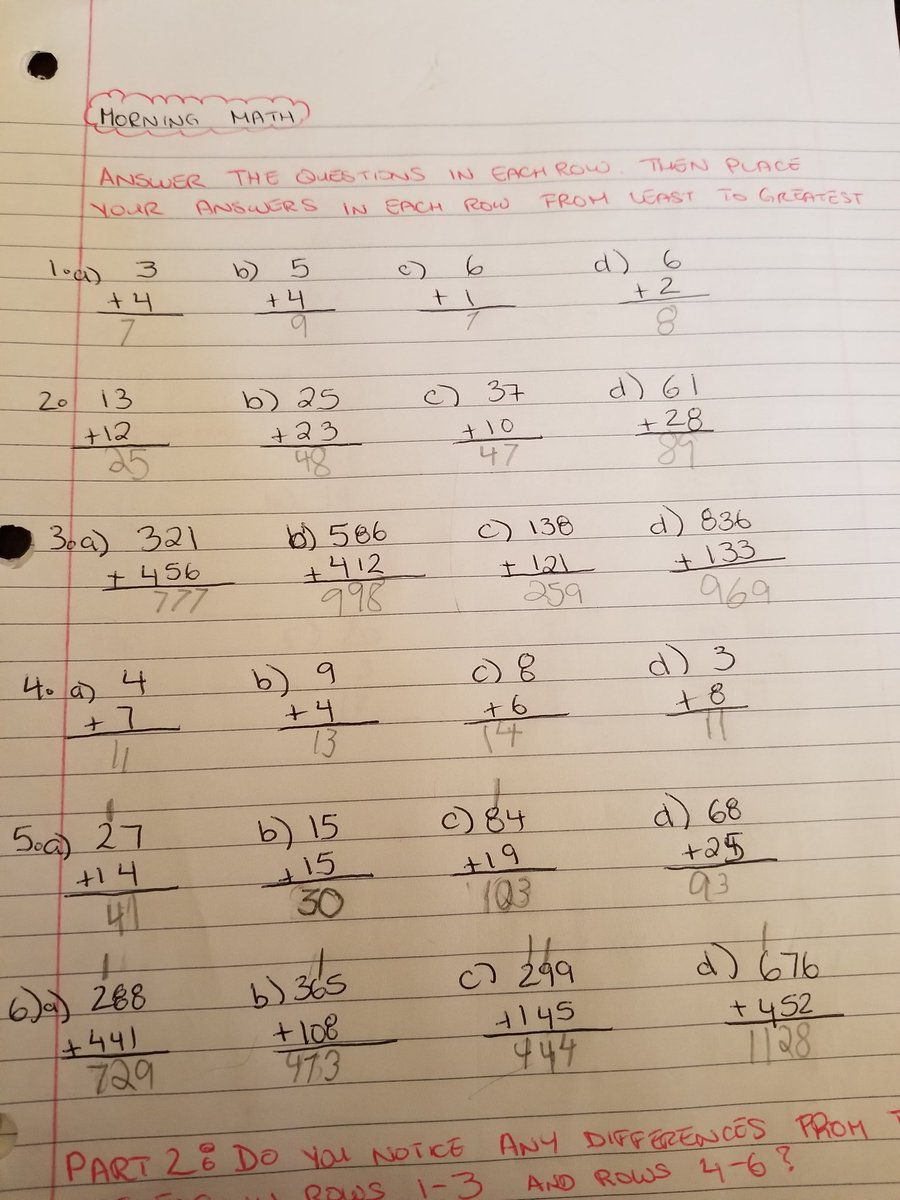 MORNING MATH
ANSWER THE QUESTIONS IN EACH ROW. THEN PLACE
YOUR ANSWERS IN EACH ROW FROM LEAST TO GREATEST
1.a) 3 b) 5 c) 6 d) 6
+4 +4 +1 +2
7 9 7 8
2. 13 b) 25 c) 37 d) 61
+12 +23 +10 +28
25 48 47 89
3.a) 321 b) 586 c) 138 d) 836
+456 +412 +121 +133
777 998 259 969
4. a) 4 b) 9 c) 8 d) 3
+7 +4 +6 +8
11 13 14 11
1 1
5.a) 27 b) 15 c) 84 d) 68
+14 +15 +19 +25
41 30 103 93
1 1 11 1
6)a) 288 b) 365 c) 299 d) 676
+441 +108 +145 +452
729 473 444 1128
PART 2: DO YOU NOTICE ANY DIFFERENCES FROM
ROWS 1-3 AND ROWS 4-6?